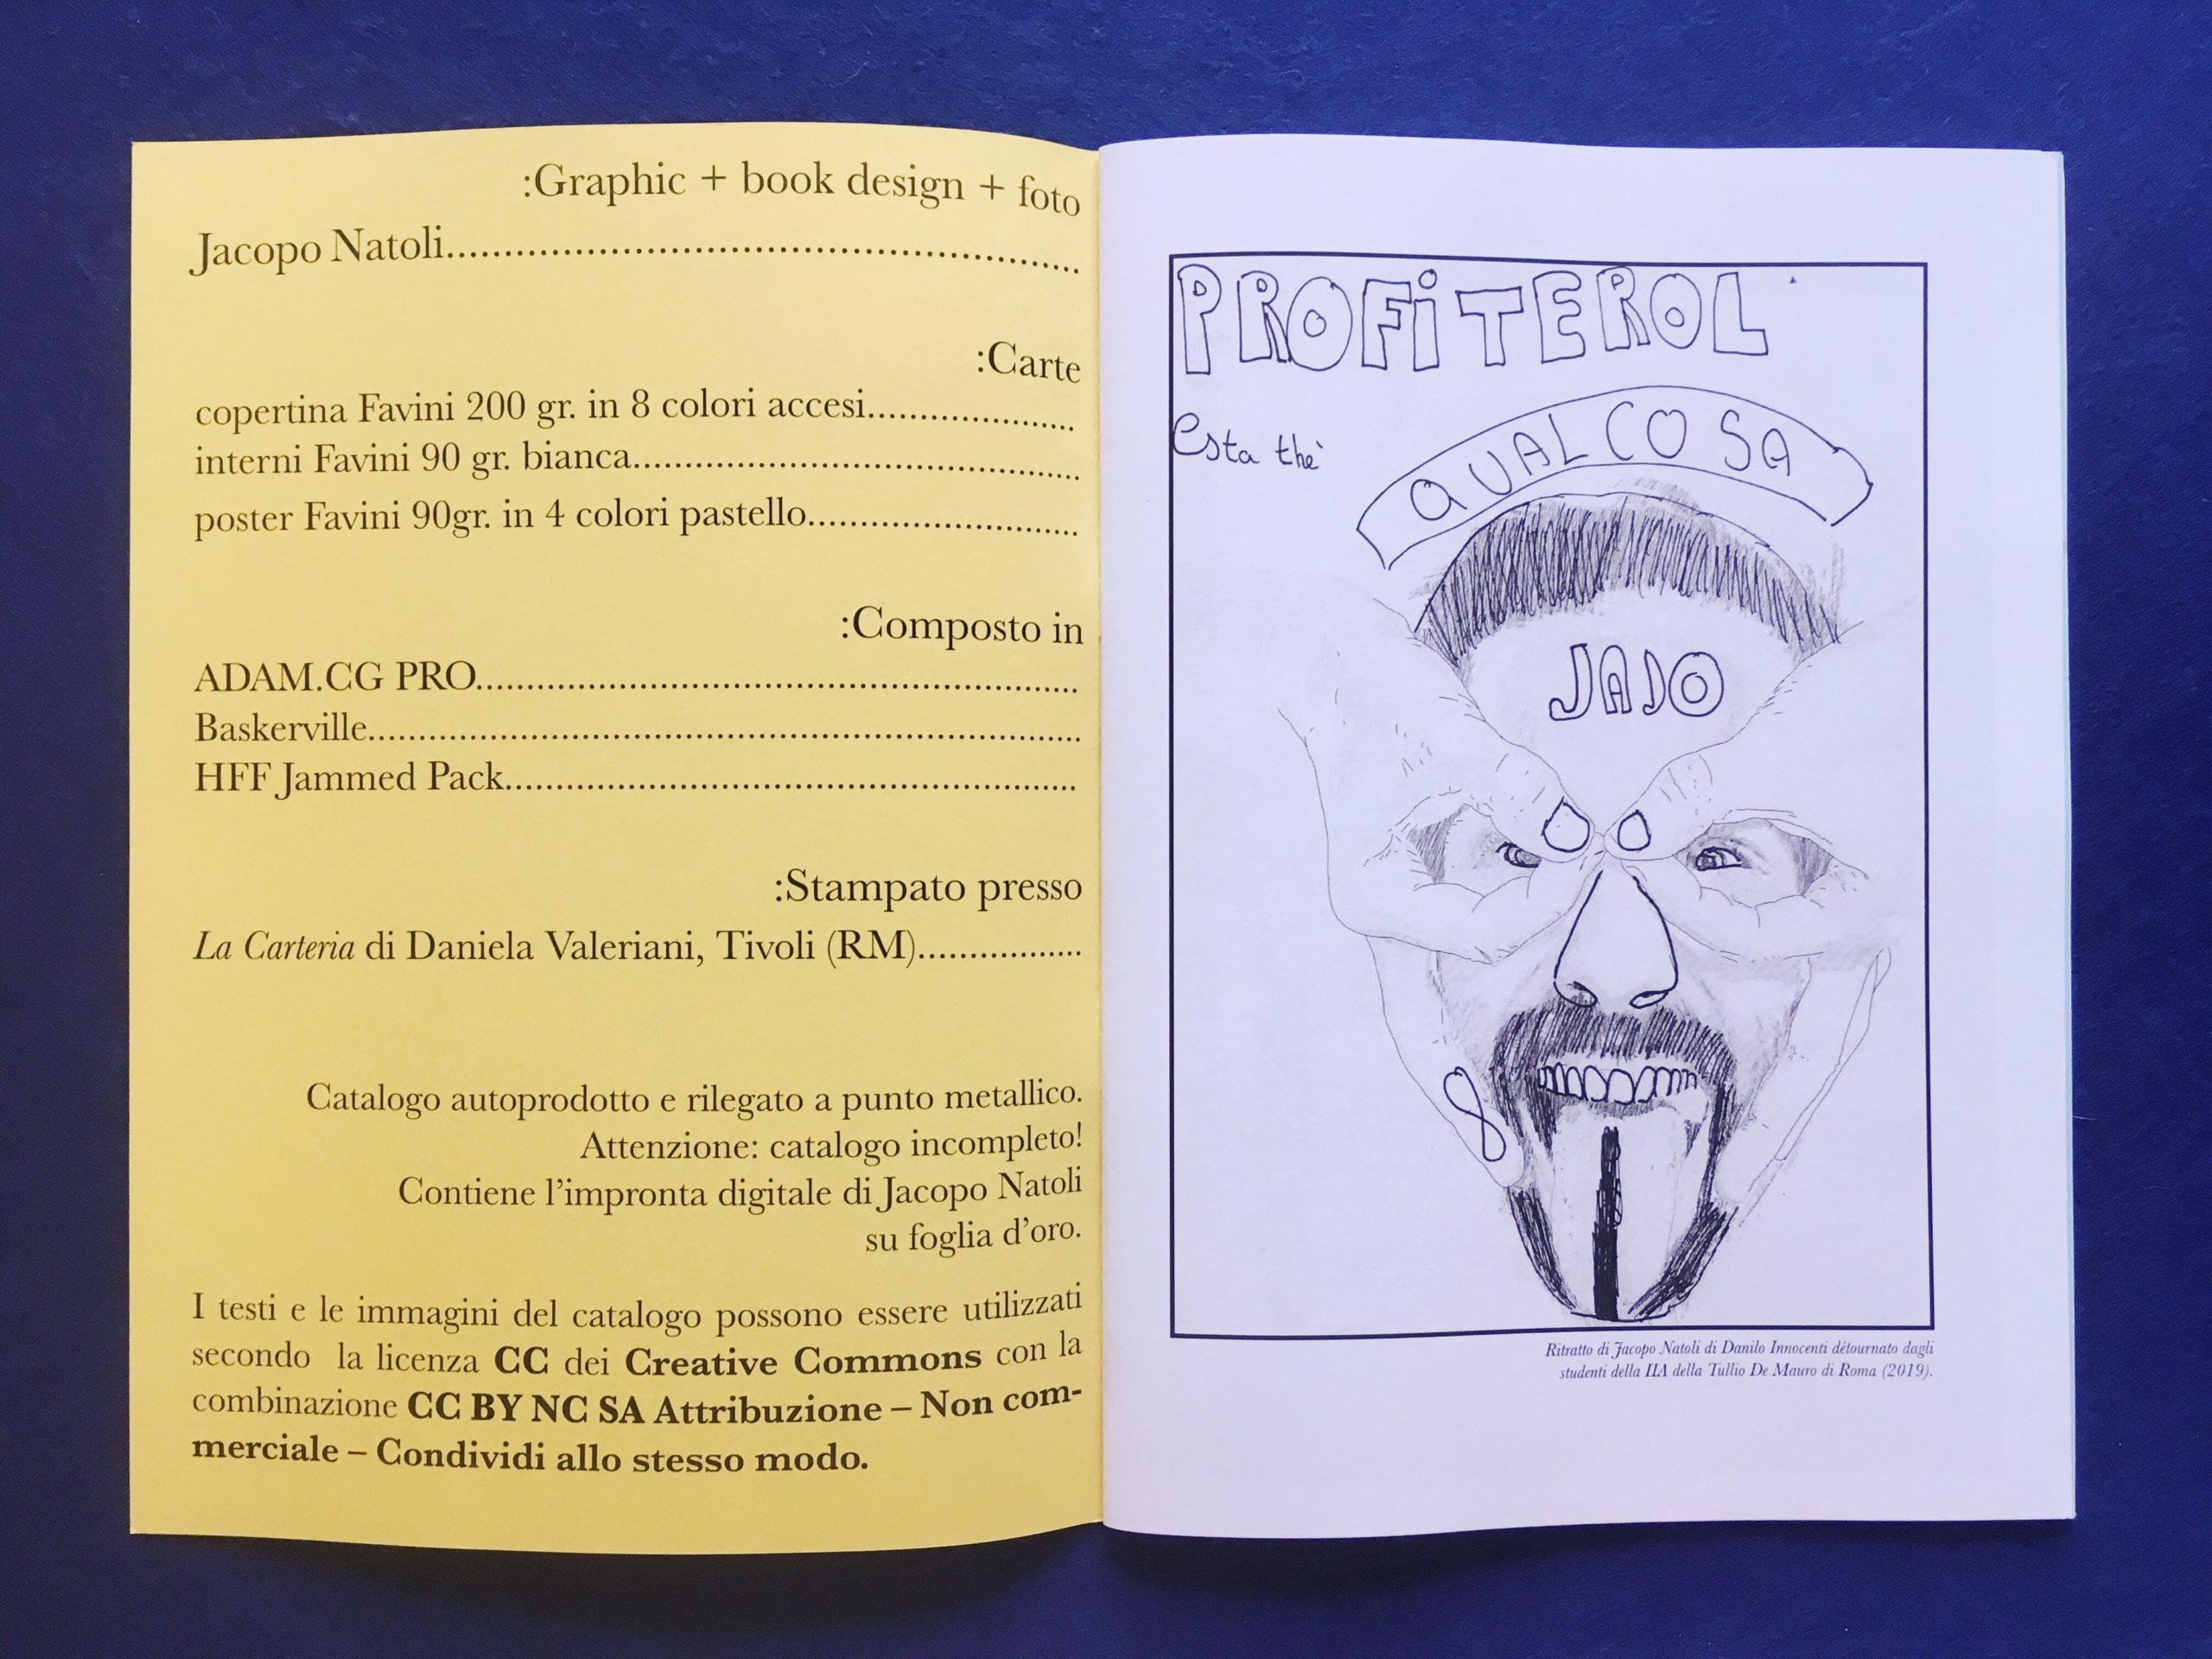 :Graphic + book design + foto
Jacopo Natoli......................................................
:Carte
copertina Favini 200 gr. in 8 colori accesi.....................
interni Favini 90 gr. bianca.............................................
poster Favini 90gr. in 4 colori pastello...........................
:Composto in
ADAM.CG PRO............................................................
Baskerville.......................................................................
HFF Jammed Pack.........................................................
:Stampato presso
La Carteria di Daniela Valeriani, Tivoli (RM).................
Catalogo autoprodotto e rilegato a punto metallico.
Attenzione: catalogo incompleto!
Contiene l’impronta digitale di Jacopo Natoli
su foglia d’oro.
I testi e le immagini del catalogo possono essere utilizzati
secondo la licenza CC dei Creative Commons con la
combinazione CC BY NC SA Attribuzione – Non com-
merciale – Condividi allo stesso modo.
PROFiTEROL
Esta thè
QUALCOSA
JAJO
8
Ritratto di Jacopo Natoli di Danilo Innocenti détournato dagli
studenti della IIA della Tullio De Mauro di Roma (2019).